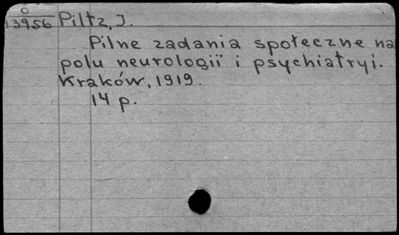 O
13956 Piltz, J.
Pilne zadania społeczne na
polu neurologii i psychiatryi.
Kraków, 1919.
14 p.